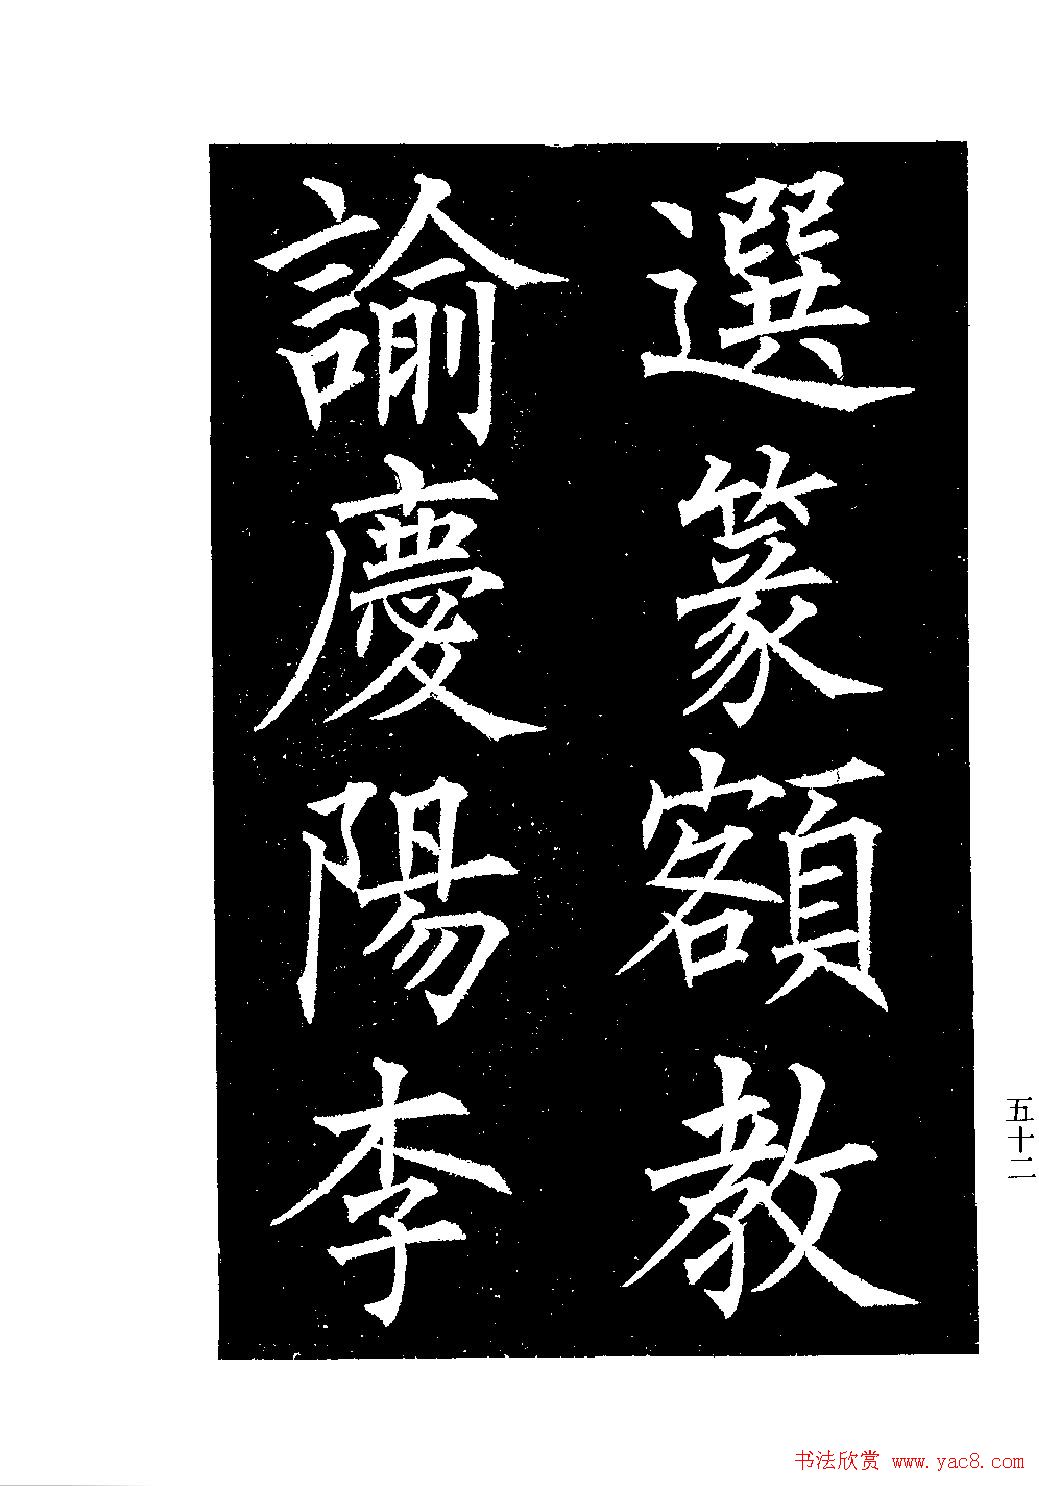 選篆額教
諭慶陽李
五十二
书法欣赏 www.yac8.com